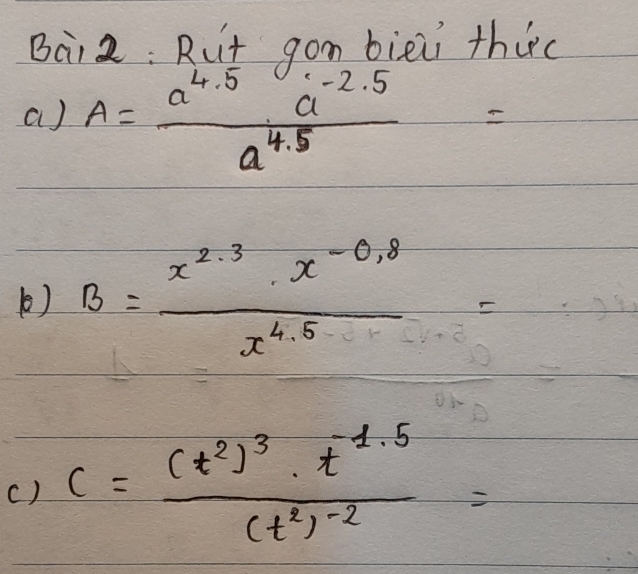 Bài 2 : Rút gọn biểu thức
a) A = \frac{a^{4.5} . a^{-2.5}}{a^{4.5}} =
b) B = \frac{x^{2.3} . x^{-0,8}}{x^{4.5}} =
c) C = \frac{(t^2)^3 . t^{-1.5}}{(t^2)^{-2}} =